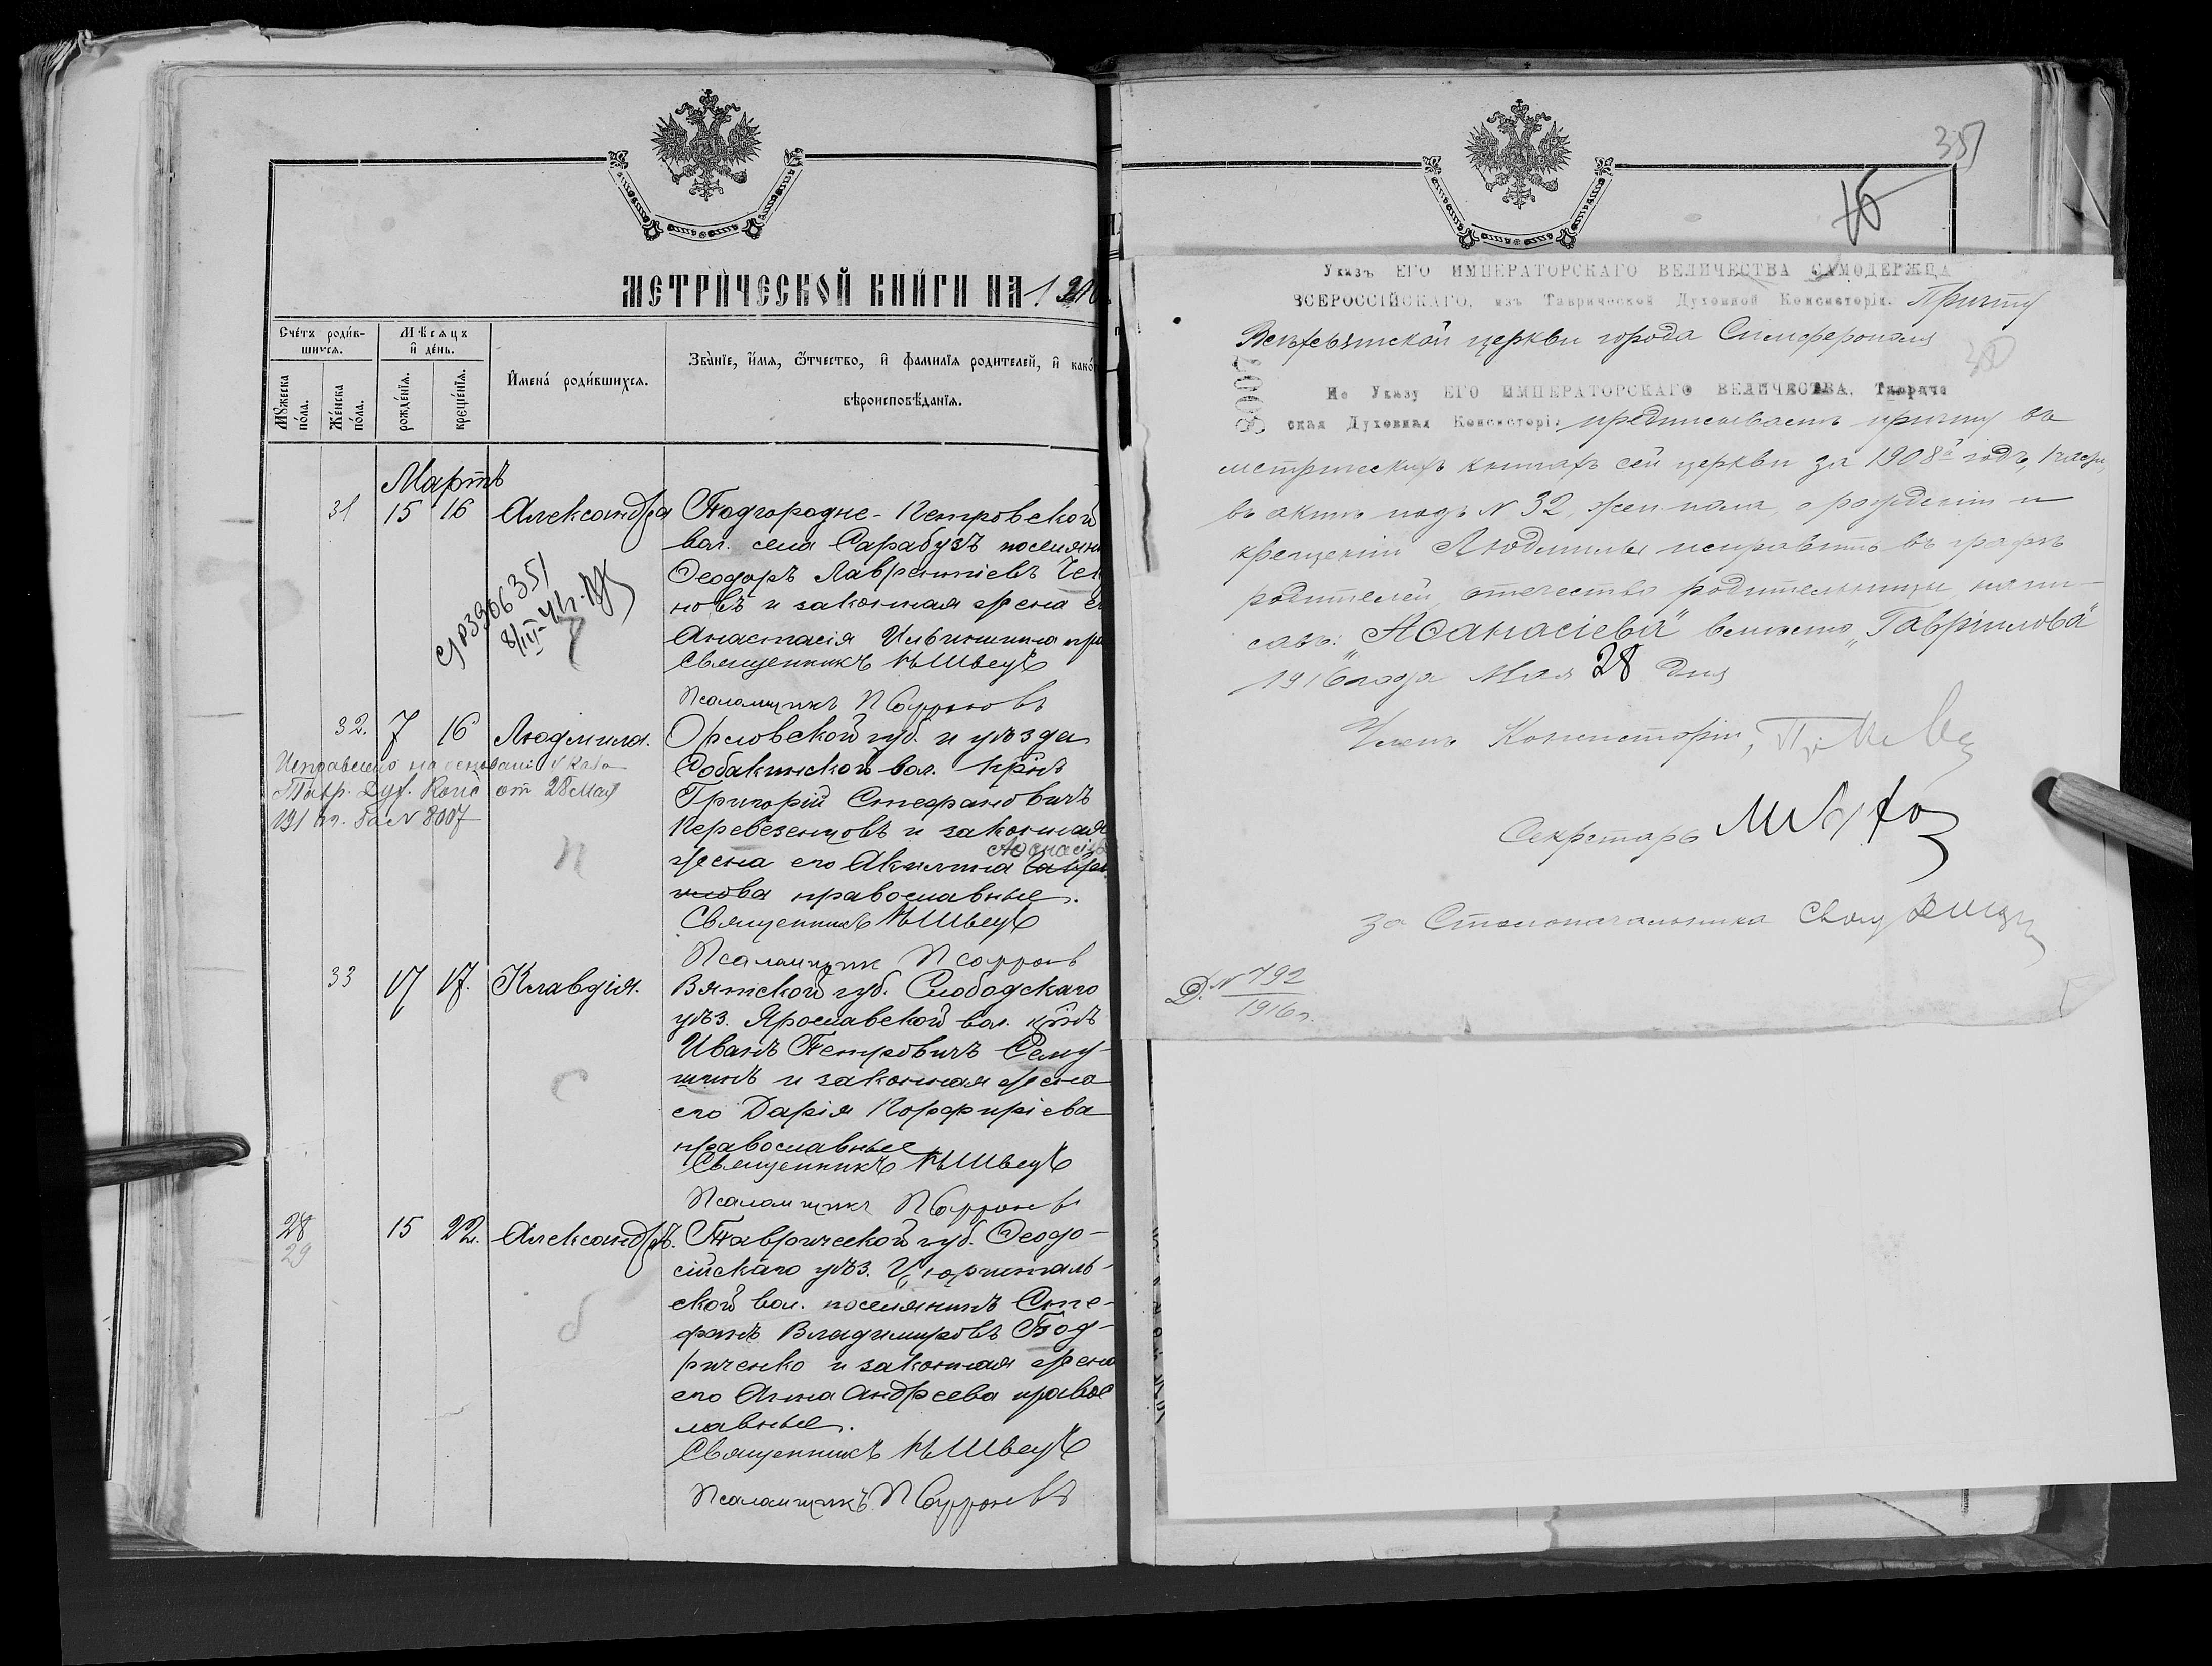 МЕТРИЧЕСКОЙ КНИГИ НА 19
Счетъ родив-
шихся.
Мѣсяцъ
и день.
Мужеска
пола.
Женска
пола.
рожденія.
крещенія.
Имена родившихся.
Званіе, имя, отчество, и фамилія родителей, и како
вѣроисповѣданія.
Мартъ
31 15 16 Александра
Подгородне-Петровской
вол. села Сарабузъ поселян
Ѳеодоръ Лаврентіевъ Чел
новъ и законная жена е
Анастасія Ильинишна пра
Священникъ Н Швецъ
Псаломщикъ П Сафроновъ
32. 7 16 Людмила.
Орловской губ. и уѣзда
Собакинской вол. крнъ
Григорій Стефановичъ
Перевезенцовъ и законная
Аѳанасіев
жена его Акилина Гаврі
илова православные.
Священникъ Н Швецъ
Псаломщик П Сафронов
Исправлено на основаніи Указа
Тавр. Дух. Конс от 28 Мая
191 г. за № 8007
П
33 17 17. Клавдія.
Вятской губ. Слободскаго
уѣз. Ярославской вол. крнъ
Иванъ Петровичъ Сему-
шинъ и законная жена
его Дарія Порфиріева
православные
Священникъ Н Швецъ
Псаломщикъ П Сафронов
С
28 15 22. Александръ.
29
Таврической губ. Ѳеодо-
сійскаго уѣз. Цюрихталь-
ской вол. поселянинъ Сте-
фанъ Владимировъ Бод-
риченко и законная жена
его Анна Андреева правос
лавные.
Священникъ Н Швецъ
Псаломщикъ П Сафроновъ
б
35
Указъ ЕГО ИМПЕРАТОРСКАГО ВЕЛИЧЕСТВА САМОДЕРЖЦА
ВСЕРОССІЙСКАГО, изъ Таврической Духовной Консисторіи. Причту
Всѣхсвятской церкви города Симферополя
8007
По Указу ЕГО ИМПЕРАТОРСКАГО ВЕЛИЧЕСТВА, Тавриче
ская Духовная Консисторія предписываетъ причту въ
метрическихъ книгахъ сей церкви за 1908й годъ, 1 части,
въ актѣ подъ № 32, жен пола, о рожденіи и
крещеніи Людмилы исправить въ графѣ
родителей, отчество родительницы, напи-
савъ: „Аѳанасіева" вмѣсто „Гавріилова"
1916 года Мая 28 дня
Членъ Консисторіи,
Секретарь
за Столоначальника
Д. № 792
1916 г.